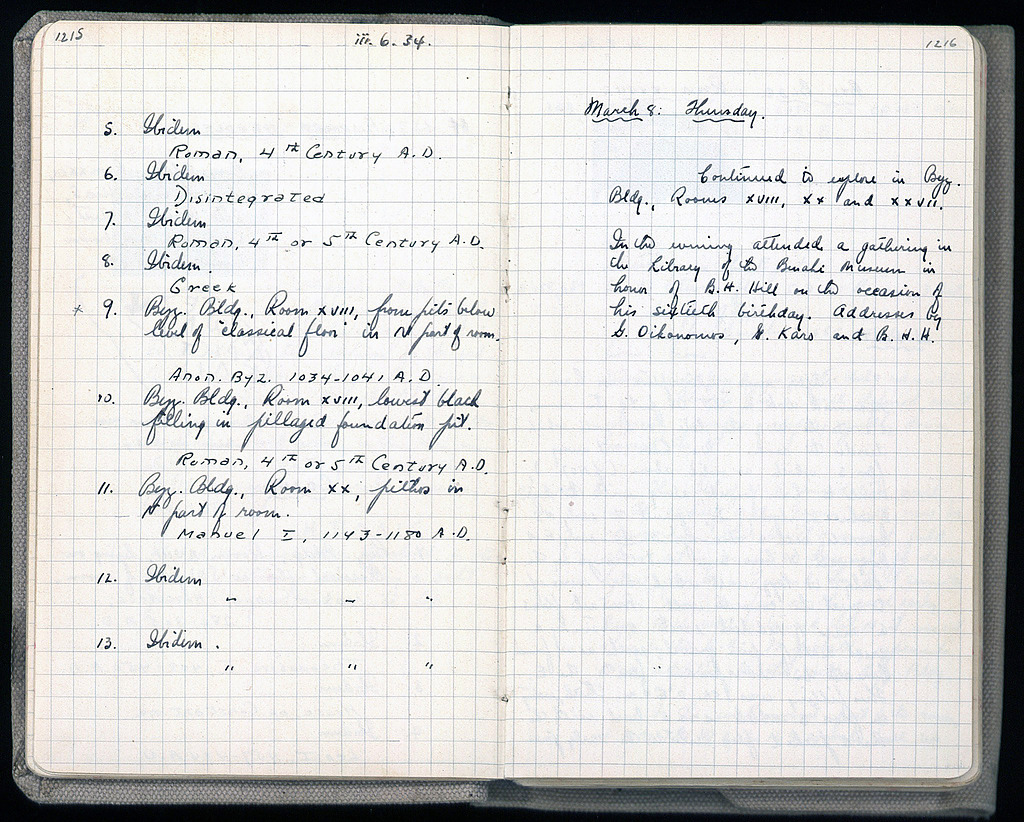 1215
iii. 6. 34.
5. Ibidem
Roman, 4th Century A.D.
6. Ibidem
Disintegrated
7. Ibidem
Roman, 4th or 5th Century A.D.
8. Ibidem.
Greek
* 9. Byz. Bldg., Room XVIII, from pits below
level of "classical floor" in N part of room.
Anon. Byz. 1034-1041 A.D.
10. Byz. Bldg., Room XVIII, lowest black
filling in pillaged foundation pit.
Roman, 4th or 5th Century A.D.
11. Byz. Bldg., Room XX, pithos in
N part of room.
Manuel I, 1143-1180 A.D.
12. Ibidem
" " "
13. Ibidem.
" " "
1216
March 8: Thursday.
Continued to explore in Byz.
Bldg., Rooms XVIII, XX and XXVII.
In the evening attended a gathering in
the Library of the Benaki Museum in
honor of B.H. Hill on the occasion of
his sixtieth birthday. Addresses by
G. Oikonomos, G. Karo and B.H.H.